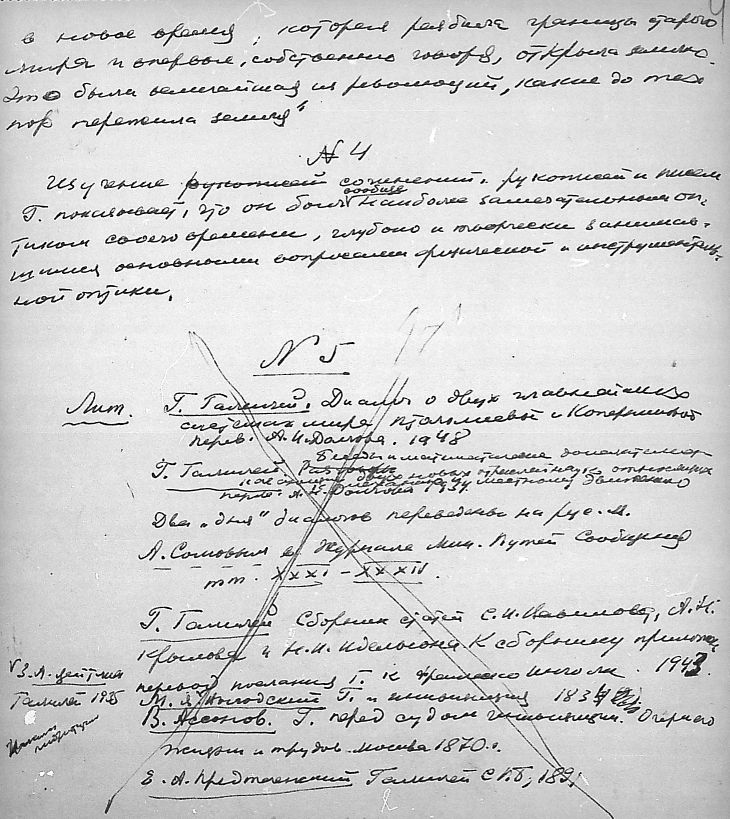 в новое время, которая разбила границы старого
мира и впервые, собственно говоря, открыла землю.
Это была величайшая из революций, какие до тех
пор пережила земля"
N 4
Изучение рукописей сочинений, рукописей и писем
Г. показывает, что он был вообще наиболее замечательным оп-
тиком своего времени, глубоко и творчески занимав-
шимся основными вопросами физической и инструменталь-
ной оптики.
N 5
Лит. Г. Галилей. Диалог о двух главнейших
системах мира птолемеевой и Коперниковой
перев. А.И.Долгова. 1948
Беседы и математические доказательства
Г. Галилей.
касающиеся двух новых отраслей науки относящихся
к механике и местному движению
перев. А.Н. Долгова 1934.
Два „дня" диалогов переведены на рус.
А. Сомовым в Журнале Мин. Путей Сообщения
тт. XXXI – XXXII.
Г. Галилей Сборник статей С.И. Вавилова, А.Н.
Крылова и Н.И. Идельсона К сборнику приложен
перевод послания Г. к Франческо Инголи. 1943.
V З.А. Цейтлин
Галилей 1935
М. Я. Выгодский Г. и инквизиция 1934
В. Ассонов. Г. перед судом инквизиции. Очерк его
жизни и трудов. Москва 1870 г.
Е. А. Предтеченский Галилей С.П.Б, 189